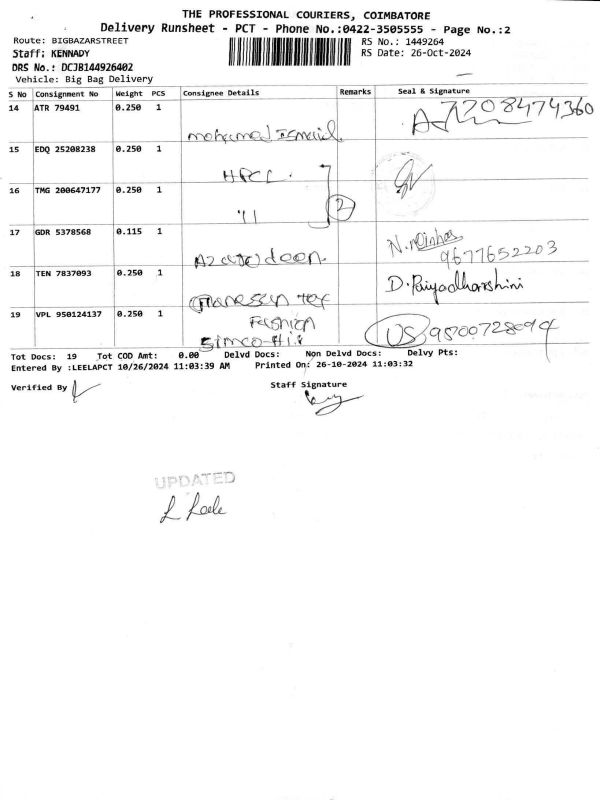 THE PROFESSIONAL COURIERS, COIMBATORE
Delivery Runsheet - PCT - Phone No.:0422-3505555 - Page No.:2
Route: BIGBAZARSTREET RS No.: 1449264
Staff: KENNADY RS Date: 26-Oct-2024
DRS No.: DCJB144926402
Vehicle: Big Bag Delivery
S No Consignment No Weight PCS Consignee Details Remarks Seal & Signature
14 ATR 79491 0.250 1 7708474360
mohamed Ismail
15 EDQ 25208238 0.250 1
HPCL
16 TMG 200647177 0.250 1
11 2
17 GDR 5378568 0.115 1
9677652203
18 TEN 7837093 0.250 1 D. Priyadharshini
19 VPL 950124137 0.250 1 Fashion
Tot Docs: 19 Tot COD Amt: 0.00 Delvd Docs: Non Delvd Docs: Delvy Pts:
Entered By :LEELAPCT 10/26/2024 11:03:39 AM Printed On: 26-10-2024 11:03:32
Verified By Staff Signature
UPDATED